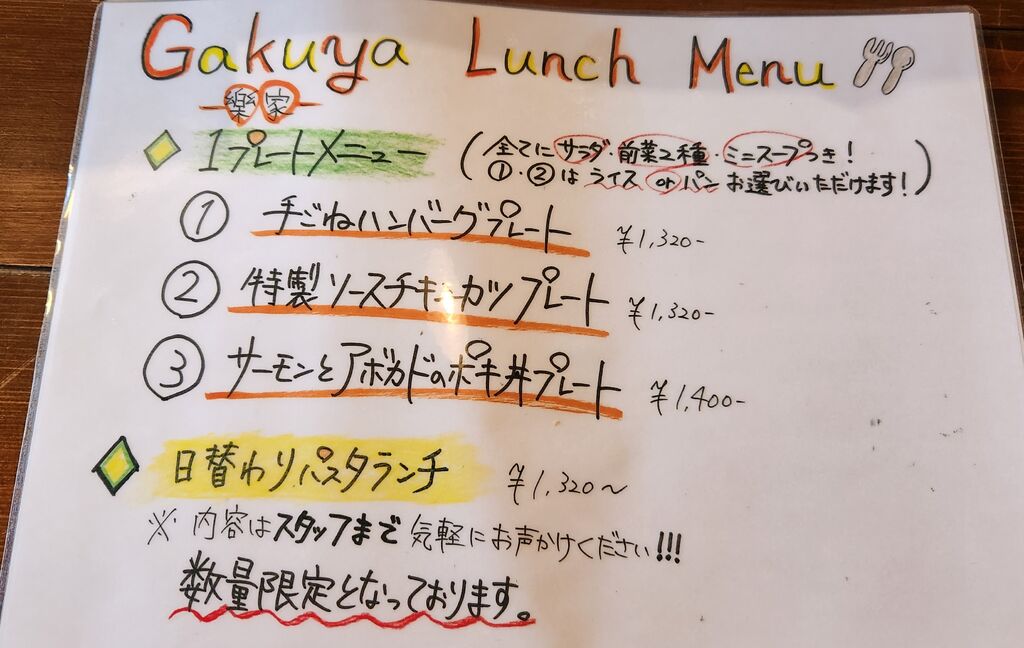 Gakuya Lunch Menu
樂家
1プレートメニュー
(全てにサラダ・前菜2種・ミニスープつき!
①・②はライスorパンお選びいただけます!)
①手ごねハンバーグプレート ¥1,320-
② 特製ソースチキンカツプレート ¥1,320-
③ サーモンとアボカドのポキ丼プレート ¥1,400-
日替わりパスタランチ ¥1,320〜
※ 内容はスタッフまで気軽にお声かけください!!!
数量限定となっております。